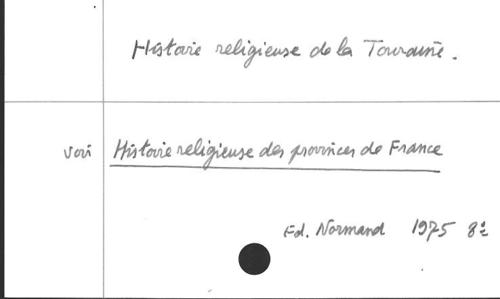 Histoire religieuse de la Touraine.
voir Histoire religieuse des provinces de France
Ed. Normand 1975 8º